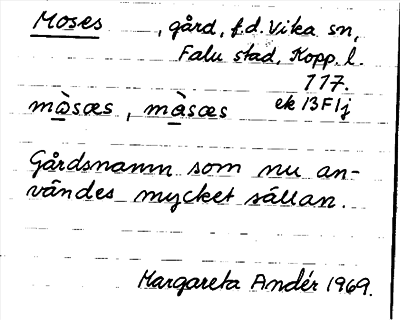 Moses , gård, f.d. Vika sn,
Falu stad, Kopp. l.
117.
mà̱sæs , mà̱sæs ek 13F1j
Gårdsnamn som nu an-
vändes mycket sällan.
Margareta Andér 1969.